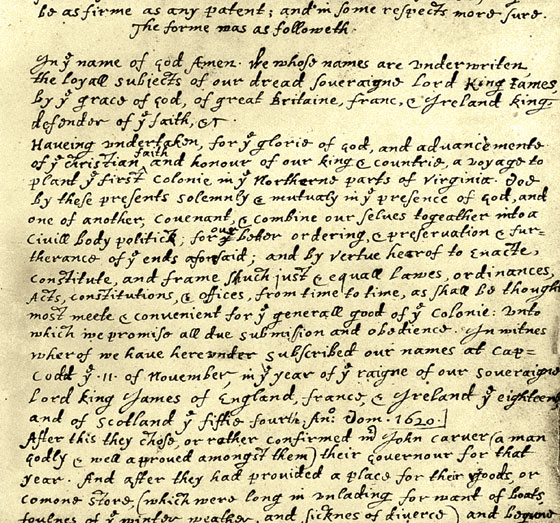 be as firme as any patent; and in some respects more sure.
The forme was as followeth.
In yͤ name of god Amen. We whose names are underwriten,
the loyall subjects of our dread soveraigne Lord King James,
by yͤ grace of god, of great Britaine, franc, & Ireland king,
defender of yͤ faith, &c
Haveing undertaken, for yͤ glorie of god, and advancemente
of yͤ christian faith and honour of our king & countrie, a voyage to
plant yͤ first colonie in yͤ Northerne parts of Virginia. Doe
by these presents solemnly & mutualy in yͤ presence of god, and
one of another, covenant, & combine our selves togeather into a
civill body politick; for our better ordering, & preservation & fur=
therance of yͤ ends aforesaid; and by vertue hearof to enacte,
constitute, and frame shuch just & equall lawes, ordinances,
Acts, constitutions, & offices, from time to time, as shall be thought
most meete & convenient for yͤ generall good of yͤ colonie: unto
which we promise all due submission and obedience. In witnes
wherof we have hereunder subscribed our names at Cap=
Codd yͤ .11. of November, in yͤ year of yͤ raigne of our soveraigne
Lord king James of England, france, & Ireland yͤ eighteenth
and of Scotland yͤ fiftie fourth. Anͦ: Dom. 1620.]
After this they chose, or rather confirmed mͬ John carver (a man
godly & well approved amongst them) their governour for that
year. And after they had provided a place for their goods, or
comone store, (which were long in unlading for want of boats,
foulnes of yͤ winter weather, and sicknes of diverce) and begune